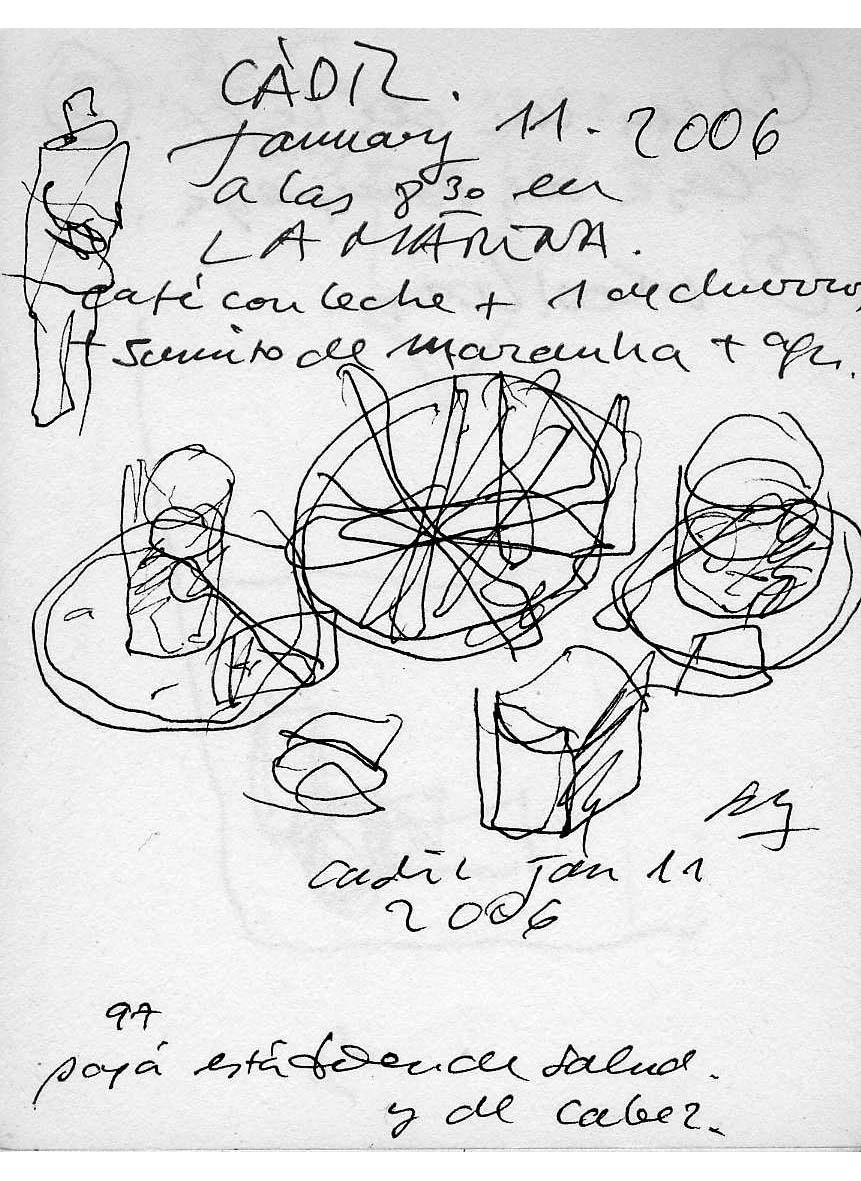 CÀDIZ.
January 11. 2006
a las 8 30 en
LA MARINA.
café con leche + 1 de churros
+ sumito de + agu.
cadiz jan 11
2006
97
papá está bien de salud.
y de cabez.